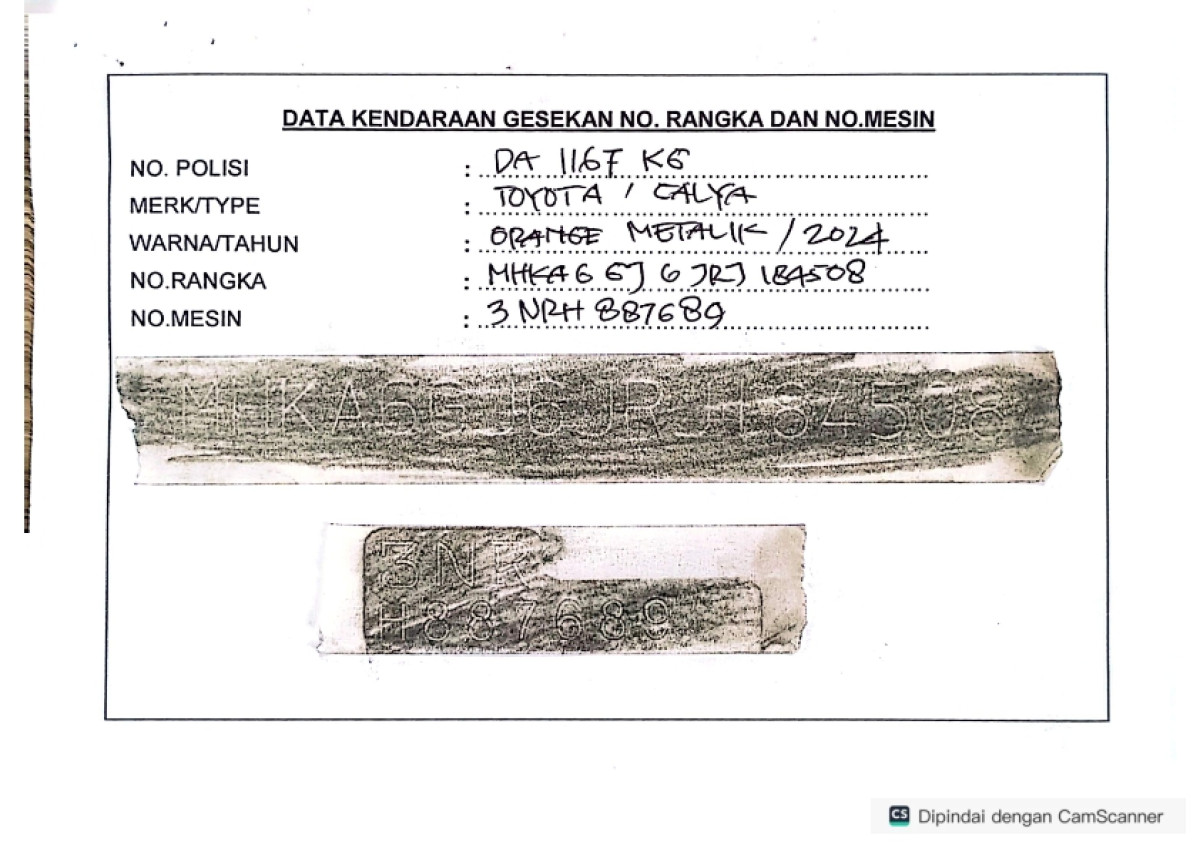 DATA KENDARAAN GESEKAN NO. RANGKA DAN NO.MESIN
NO. POLISI : DA 1167 KG
MERK/TYPE : TOYOTA / CALYA
WARNA/TAHUN : ORANGE METALIK / 2024
NO.RANGKA : MHKA6GJ6JRJ184508
NO.MESIN : 3NRH887689
MHKA6GJ6JRJ184508
3NR
H887689
CS Dipindai dengan CamScanner